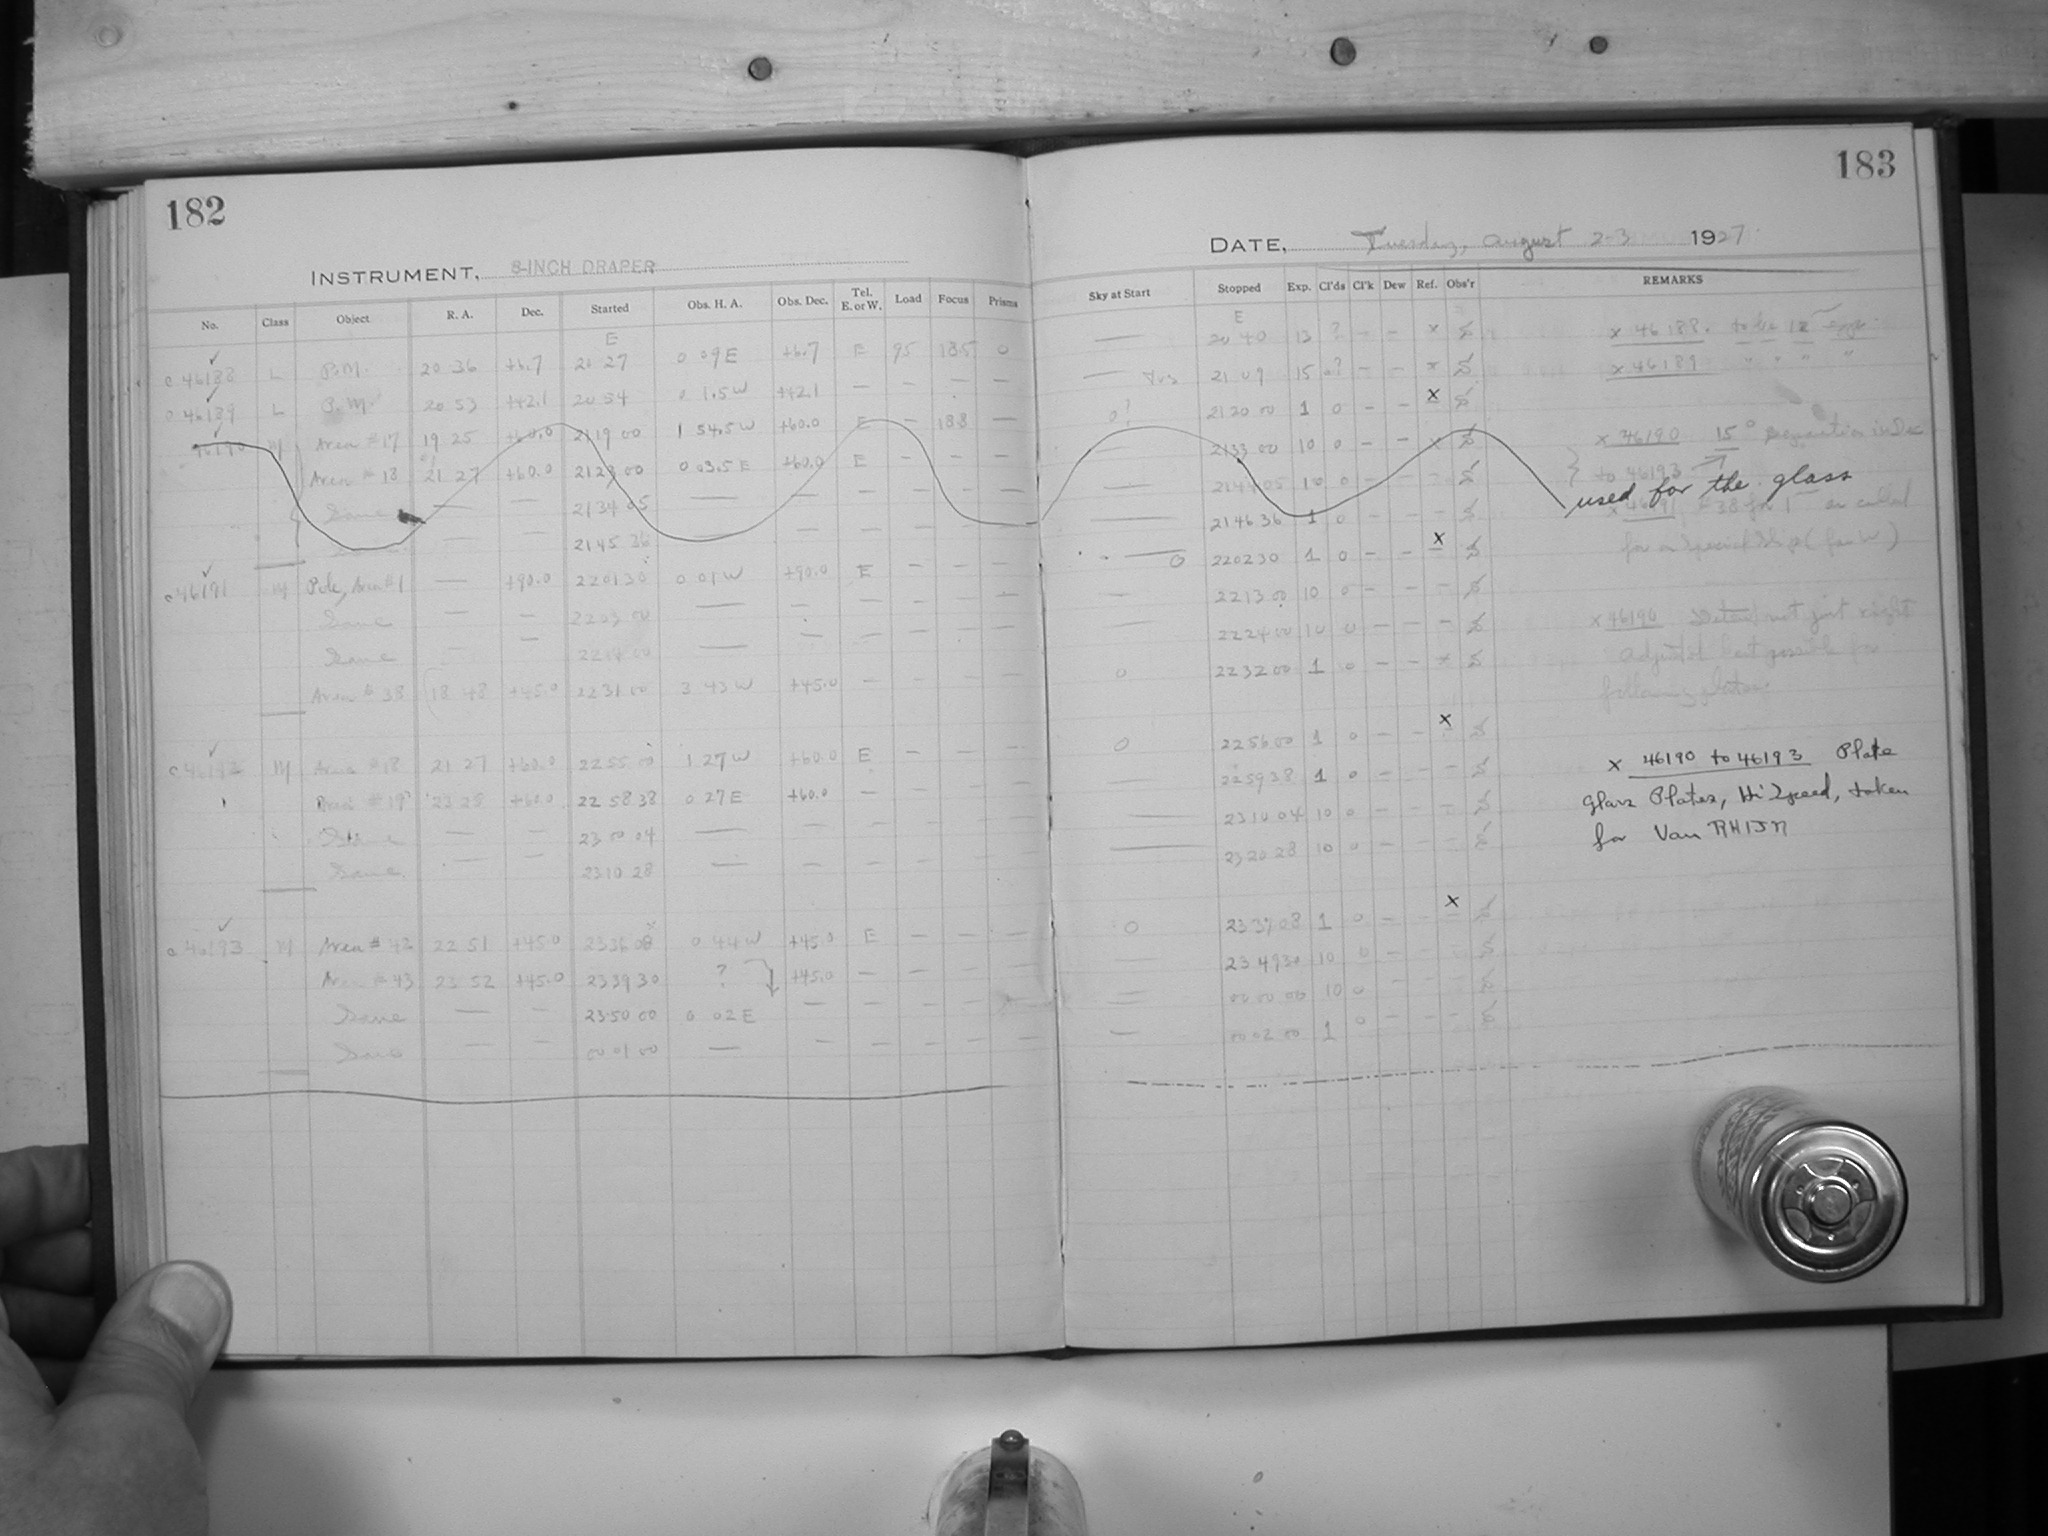 182
INSTRUMENT, 8-INCH DRAPER
No. Class Object R. A. Dec. Started Obs. H. A. Obs. Dec. Tel. E. or W. Load Focus Prisms
E
c 46188 L P.M. 20 36 +6.7 20 27 0 09 E +6.7 E 95 185 0
c 46189 L P.M. 20 53 +42.1 20 54 0 1.5 W +42.1 — — — —
46190 M Area #17 19 25 +60.0 21 19 00 1 54.5 W +60.0 E — 188 —
Area #18 21 27 +60.0 21 23 00 0 03.5 E +60.0 E — — —
Same — — 21 34 05 — — — — — —
— — 21 45 36 — — — — — —
c 46191 M Pole, Area #1 — +90.0 22 01 30 0 01 W +90.0 E — — —
Same — — 22 03 00 — — — — — —
Same — — 22 14 00 — — — — — —
Area #38 18 48 +45.0 22 31 00 3 43 W +45.0 — — — —
c 46192 M Area #18 21 27 +60.0 22 55 00 1 27 W +60.0 E — — —
Area #19 23 28 +60.0 22 58 38 0 27 E +60.0 — — — —
Same — — 23 00 04 — — — — — —
Same — — 23 10 28 — — — — — —
c 46193 M Area #42 22 51 +45.0 23 36 08 0 44 W +45.0 E — — —
Area #43 23 52 +45.0 23 39 30 ? +45.0 — — — —
Same — — 23 50 00 0 02 E — — — — —
Same — — 00 01 00 — — — — — —
183
DATE, Tuesday, August 2-3 1927
Sky at Start Stopped Exp. Cl'ds Cl'k Dew Ref. Obs'r REMARKS
E
— 20 40 13 ? — — x x 46188. to be 12
— 21 09 15 0? — — x x 46189 " " " "
0? 21 20 00 1 0 — — x
— 21 33 00 10 0 — — x x 46190 15° Separation in Dec
— 21 44 05 10 0 — — — to 46193
used for the glass
— 21 46 36 1 0 — — — x 46191 #38 for 1 as called
0 22 02 30 1 0 — — x for on Special Slip (for W)
— 22 13 00 10 0 —
— 22 24 00 10 0 — — — x 46190 not just right
0 22 32 00 1 0 — — x Adjusted best possible for
following plates
0 22 56 00 1 0 — — x
— 22 59 38 1 0 — — — x 46190 to 46193 Plate
— 23 10 04 10 0 — — — Glass Plates, Hi Speed, taken
— 23 20 28 10 0 — — — for Van RHIJN
0 23 37 08 1 0 — — x
— 23 49 30 10 0 — — —
— 00 00 00 10 0 — — —
— 00 02 00 1 0 — — —